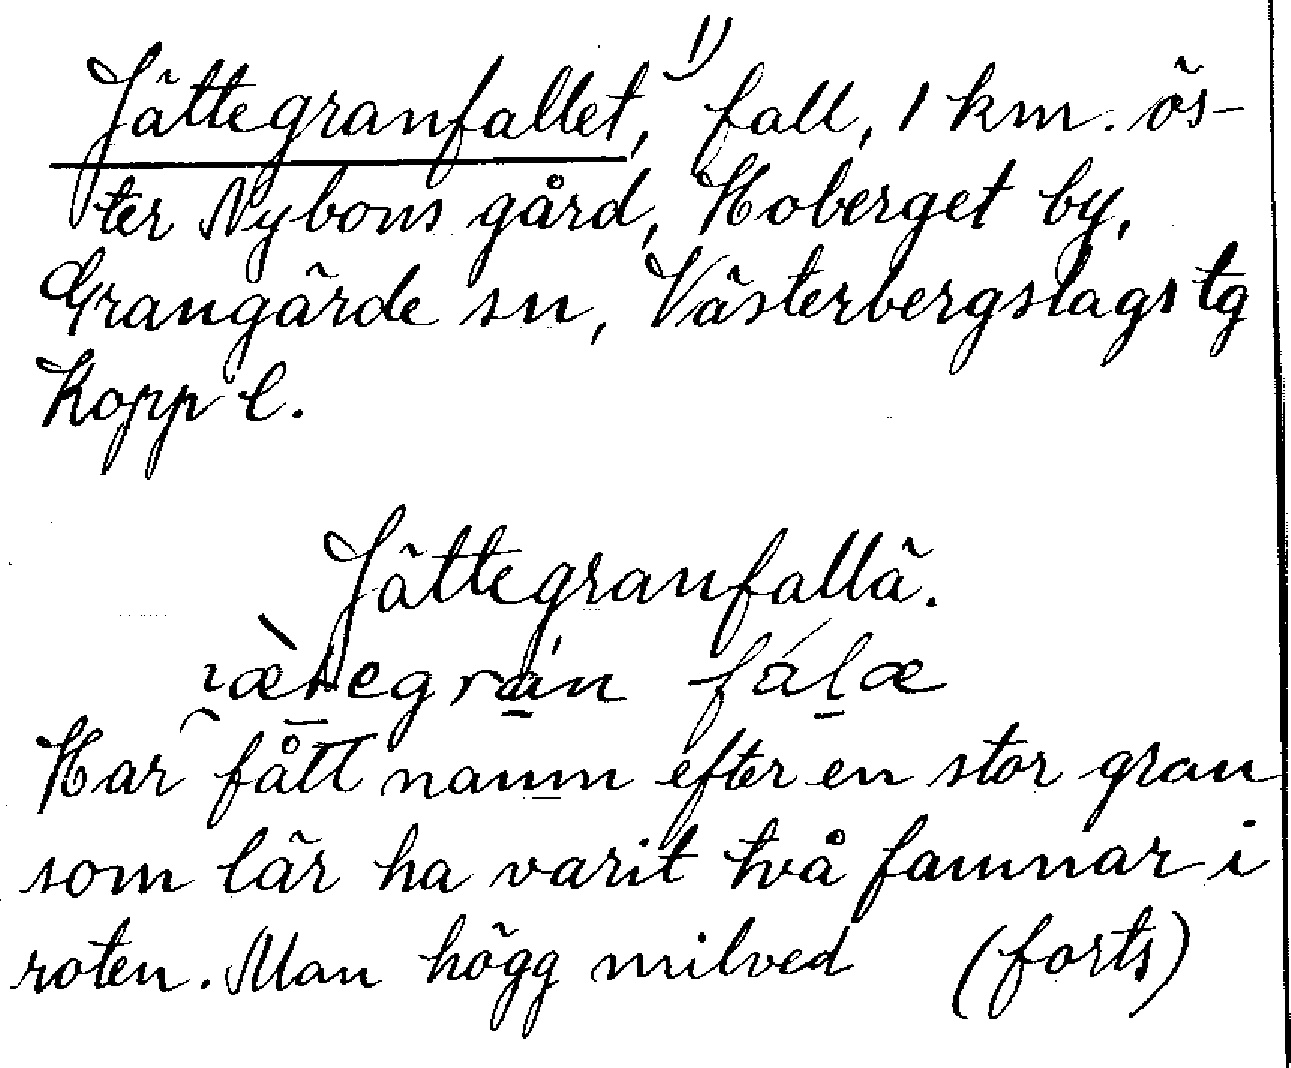 Jättegranfallet, 1) fall, 1 km. ös-
ter Nybons gård, Hoberget by,
Grangärde sn, Västerbergslags tg
Kopp l.
Jättegranfallä.
Har fått namn efter en stor gran
som lär ha varit två famnar i
roten. Man högg milved (forts)